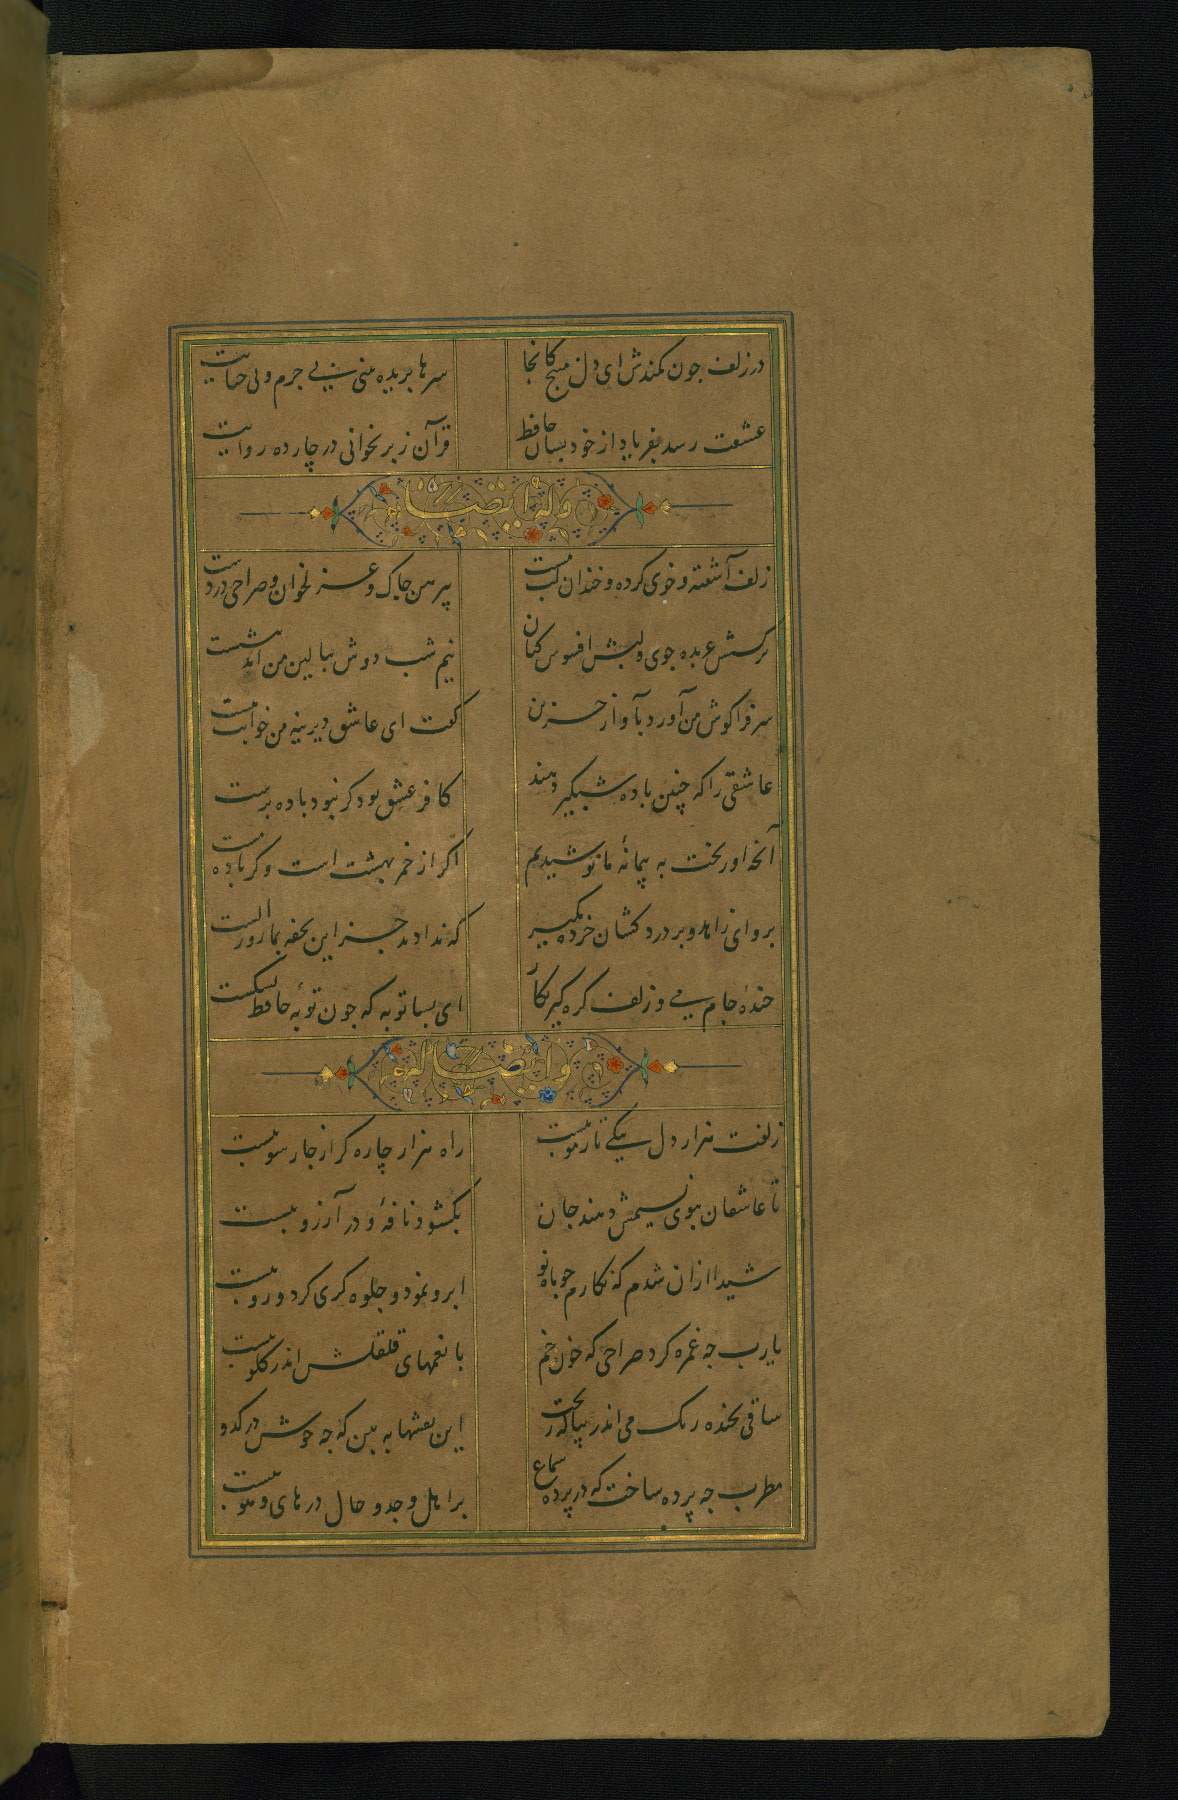 در زلف جون کمندش ای دل مپیج کانجا
سرها بریده بینی بی جرم و بی جنایت
عشقت رسد بفریاد از خود بسان حافظ
قرآن ز بر بخوانی در چارده روایت
وله ایضا
زلف آشفته و خوی کرده و خندان لب مست
پیرهن جاک و غزلخوان و صراحی در دست
نرکسش عربده جوی و لبش افسوس کنان
نیم شب دوش ببالین من آمد بنشست
سر فرا کوش من آورد بآواز حزین
کفت ای عاشق دیرینه من خوابت هست
عاشقی را که چنین باده شبکیر دهند
کافر عشق بود کر نبود باده برست
آنچه او ریخت به پیمانهٔ ما نوشیدیم
اکر از خمر بهشت است و کر باده مست
برو ای زاهد و بر درد کشان خرده مکیر
که ندادند جز این تحفه بما روز الست
خندهٔ جام می و زلف کره کیر نکار
ای بسا توبه که جون توبهٔ حافظ بشکست
وله ایضا
زلفت هزار دل بیکی تار مو ببست
راه هزار چاره کر از جار سو ببست
تا عاشقان ببوی نسیمش دهند جان
بکشود نافهٔ و در آرزو ببست
شیدا ازان شدم که نکارم جو ماه نو
ابرو نمود و جلوه کری کرد و رو ببست
یا رب جه غمزه کرد صراحی که خون خم
با نغمهای قلقلش اندر کلو ببست
ساقی بخنده رنک می اندر پیاله ریخت
این نقشها به بین که جه خوش در کدو
مطرب جه پرده ساخت که در پرده سماع
بر اهل وجد و حال در های و هو ببست